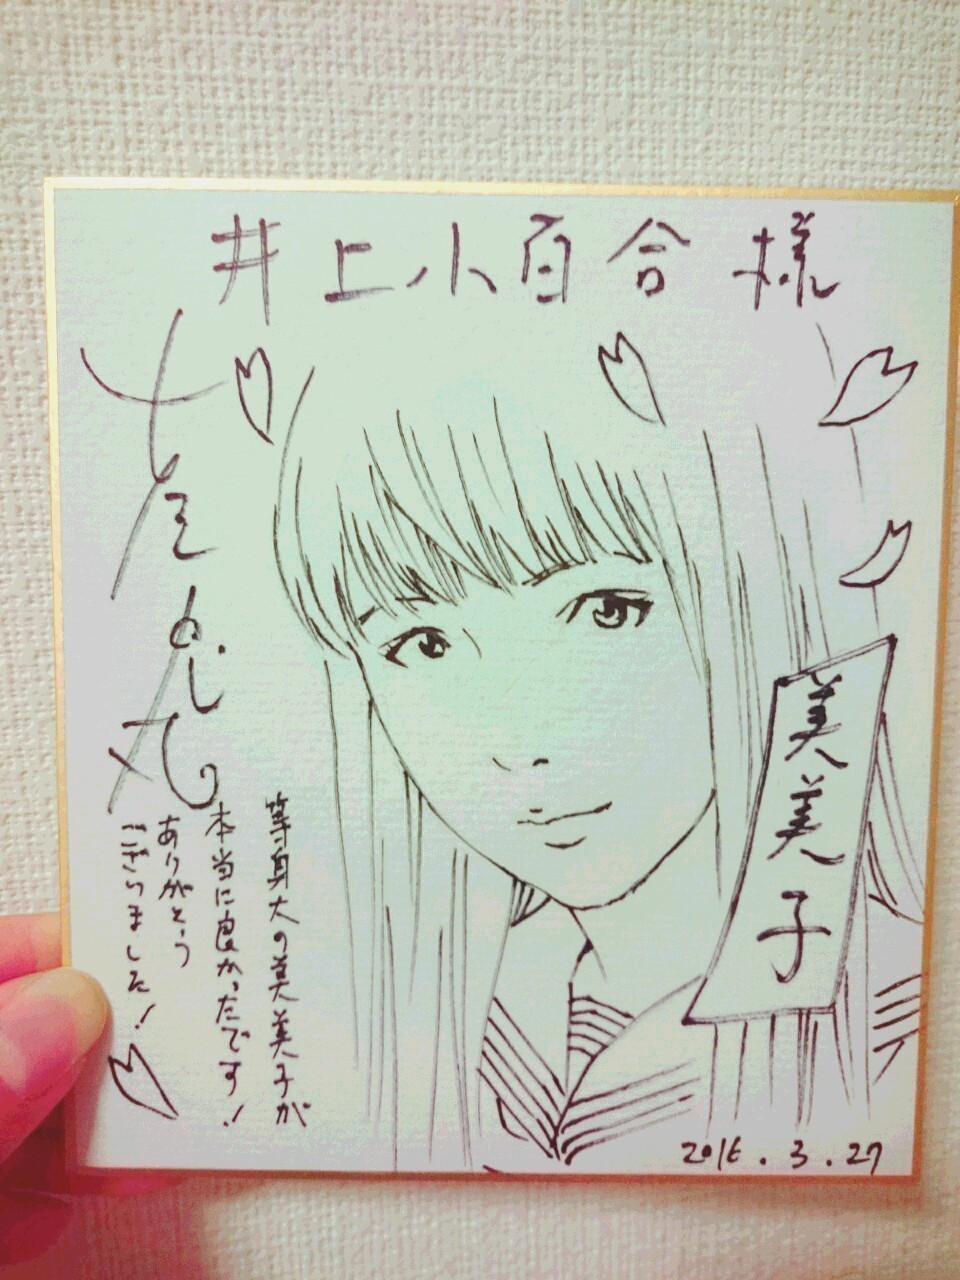 井上小百合様
美美子
等身大の美美子が
本当に良かったです!
ありがとう
ございました!
2016.3.27